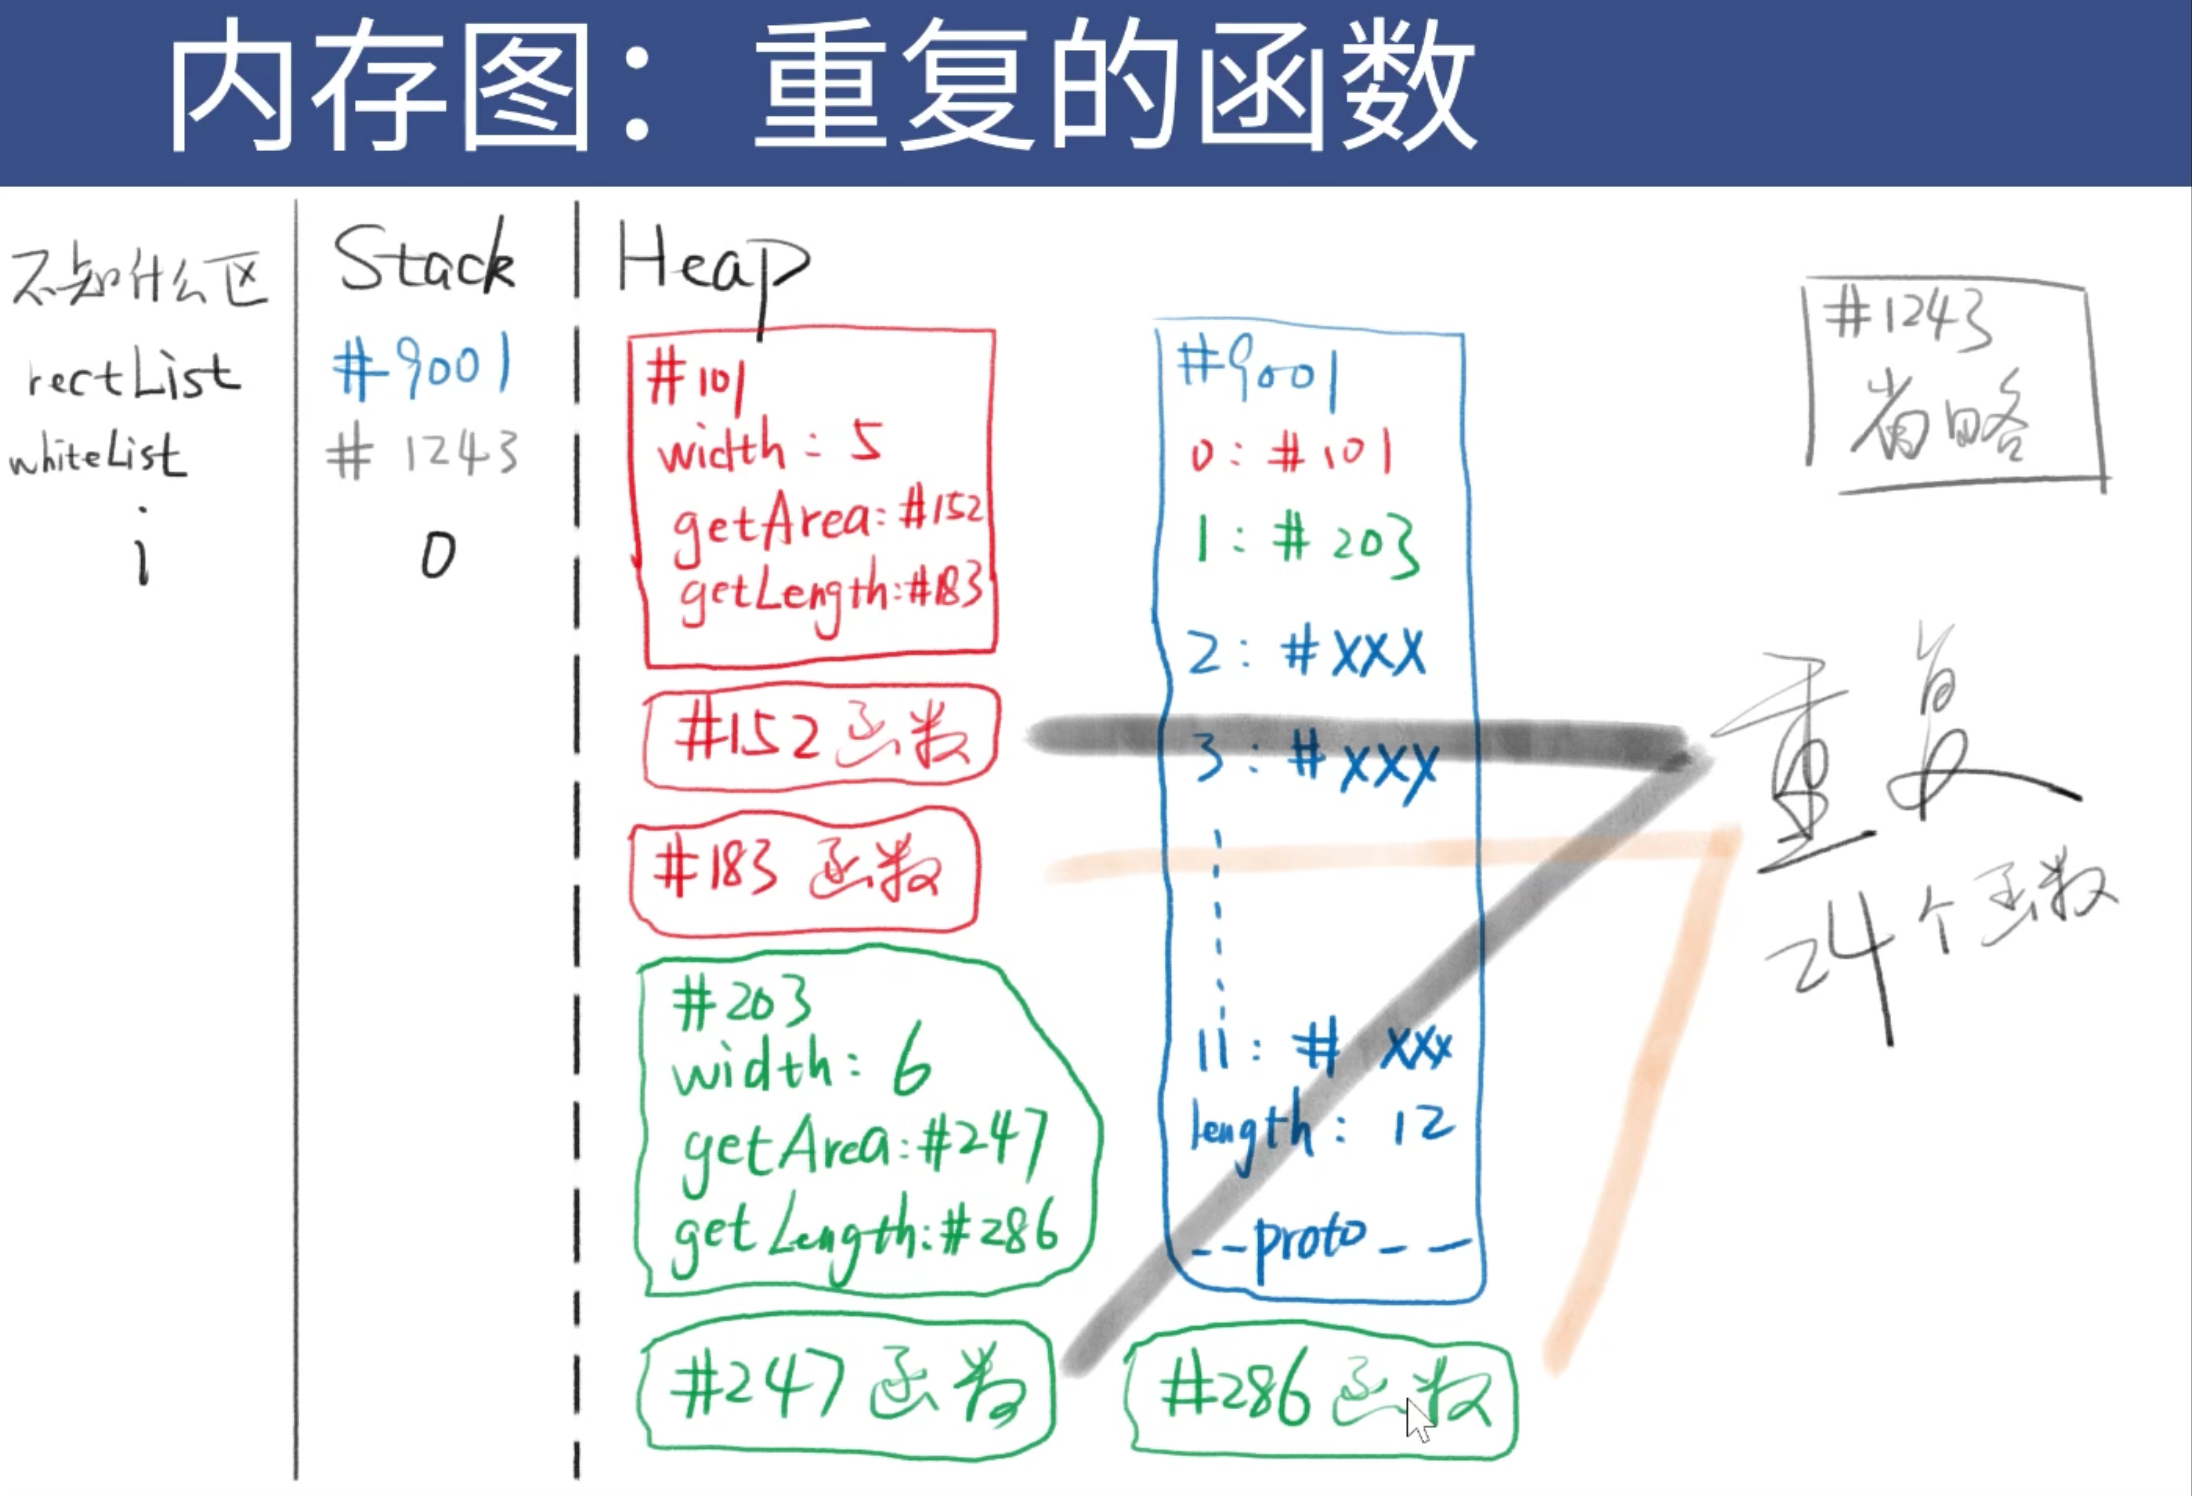 内存图：重复的函数
不知什么区
Stack
Heap
rectList
#9001
whiteList
#1243
i
0
#101
width : 5
getArea:#152
getLength:#183
#152 函数
#183 函数
#203
width: 6
getArea:#247
getLength:#286
#247 函数
#9001
0: #101
1: #203
2: #XXX
3: #XXX
11: # XXX
length: 12
--proto--
#286 函数
#1243
省略
重复
24个函数